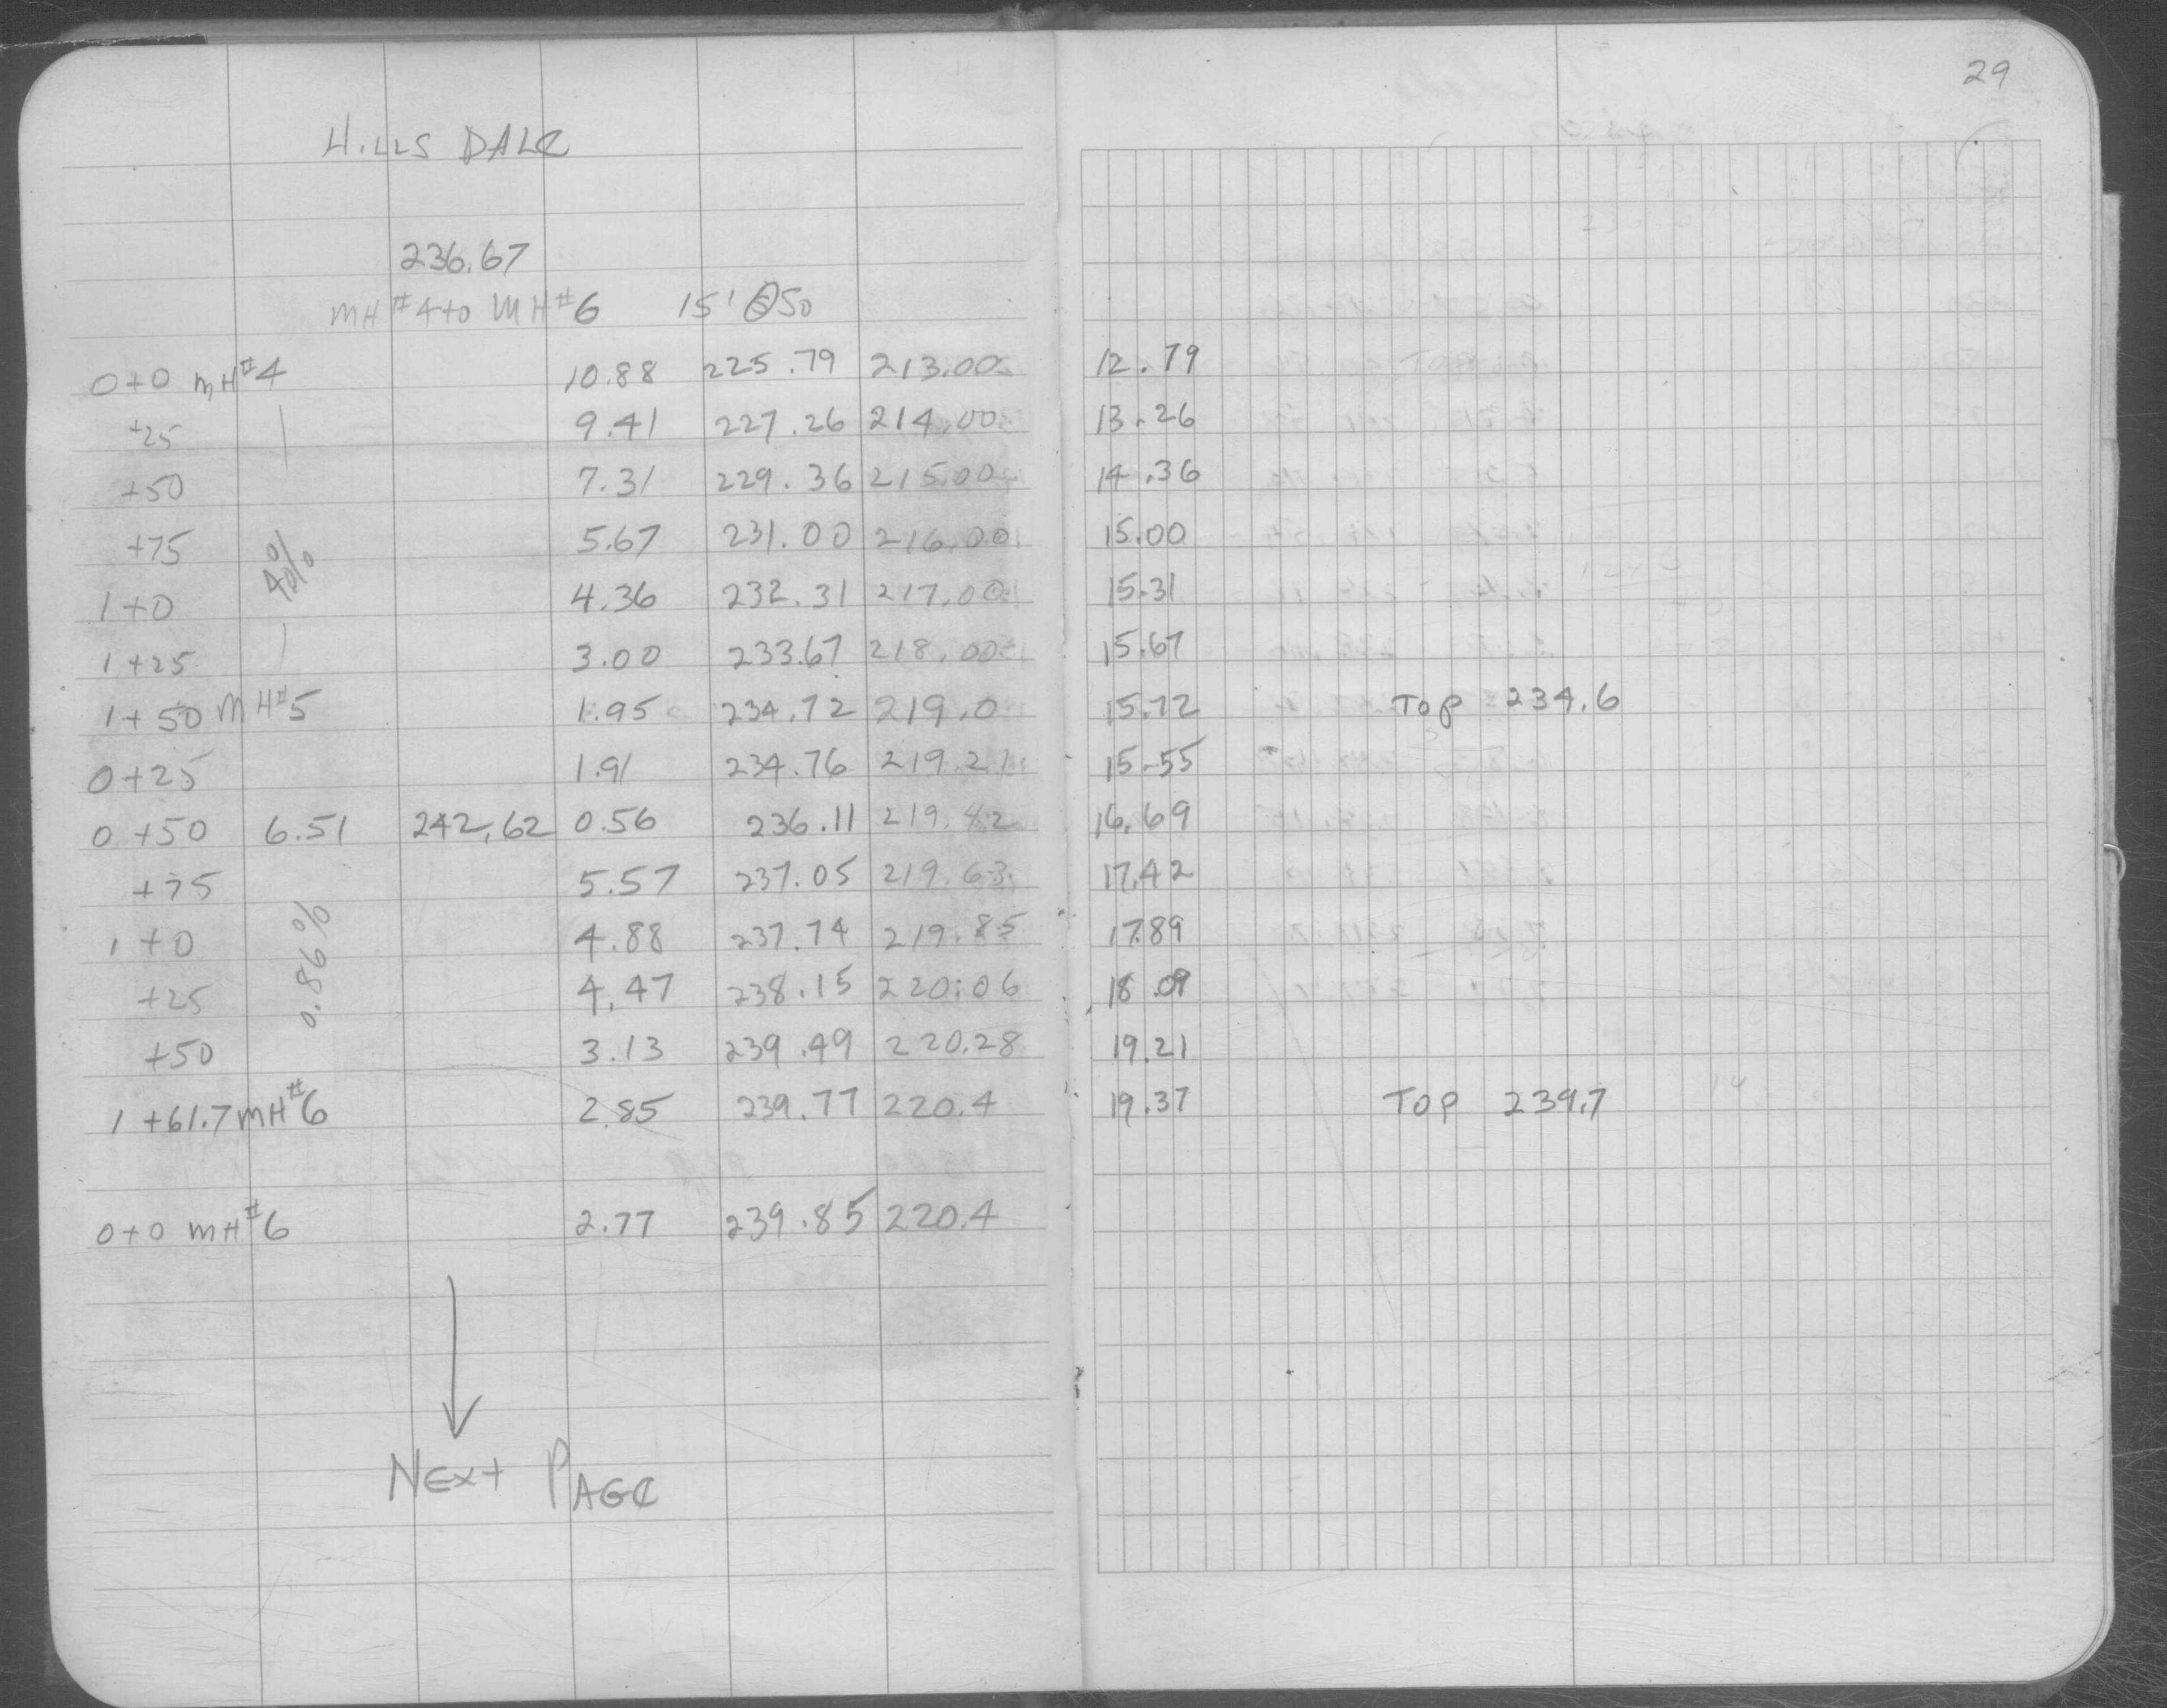 29
HILLS DALE
236.67
MH#4 to MH#6 15' @ 50
0+0 MH#4 10.88 225.79 213.00 12.79
+25 9.41 227.26 214.00 13.26
+50 7.31 229.36 215.00 14.36
+75 5.67 231.00 216.00 15.00
4%
1+0 4.36 232.31 217.00 15.31
1+25 3.00 233.67 218.00 15.67
1+50 MH#5 1.95 234.72 219.0 15.72 TOP 234.6
0+25 1.91 234.76 219.21 15.55
0+50 6.51 242.62 0.56 236.11 219.42 16.69
+75 5.57 237.05 219.63 17.42
0.86%
1+0 4.88 237.74 219.85 17.89
+25 4.47 238.15 220.06 18.09
+50 3.13 239.49 220.28 19.21
1+61.7 MH#6 2.85 239.77 220.4 19.37 TOP 239.7
0+0 MH#6 2.77 239.85 220.4
NEXT PAGE